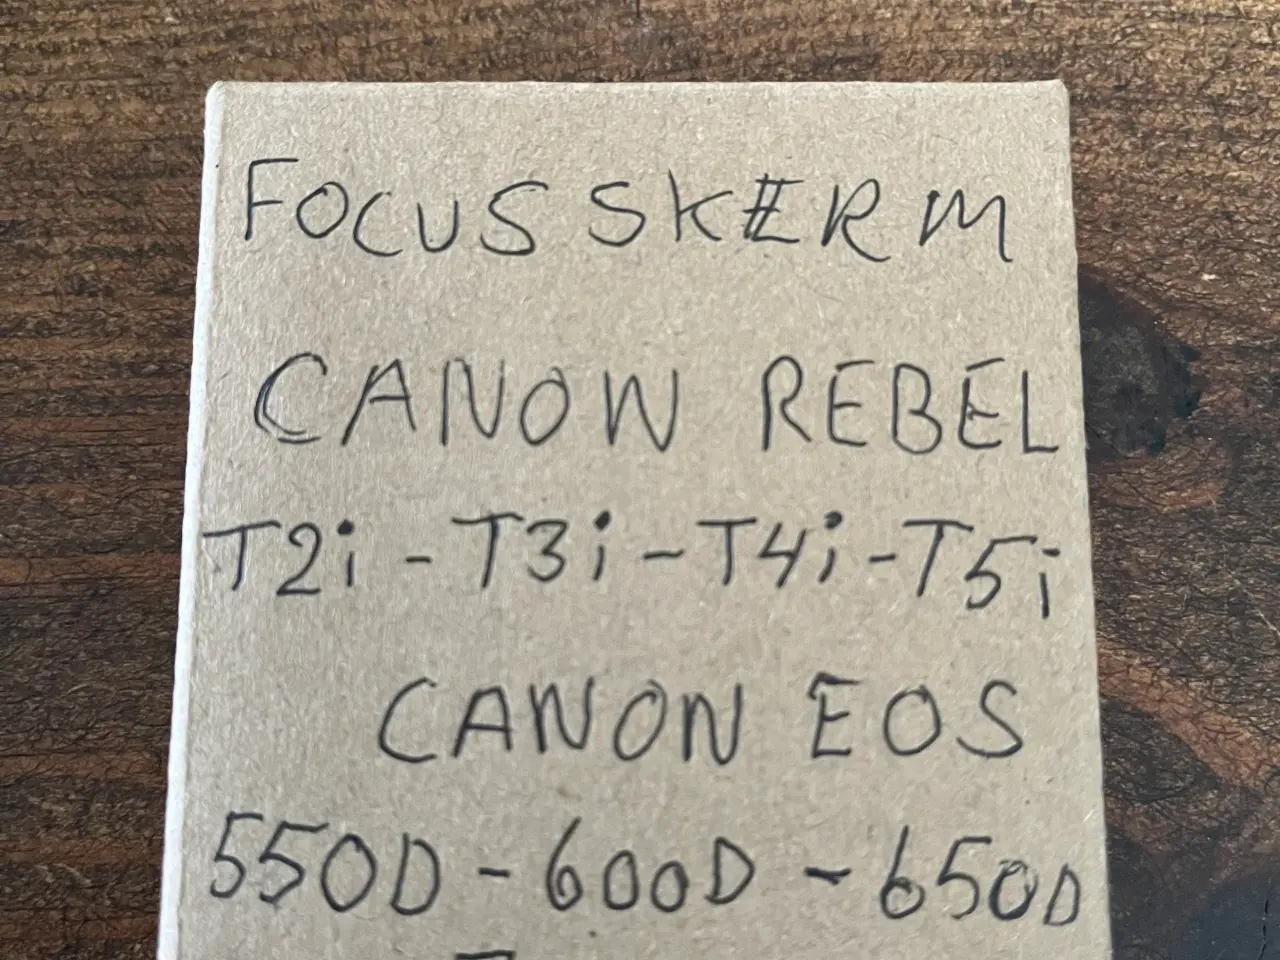 FOCUS SKERM
CANON REBEL
T2i - T3i - T4i - T5i
CANON EOS
550D - 600D - 650D